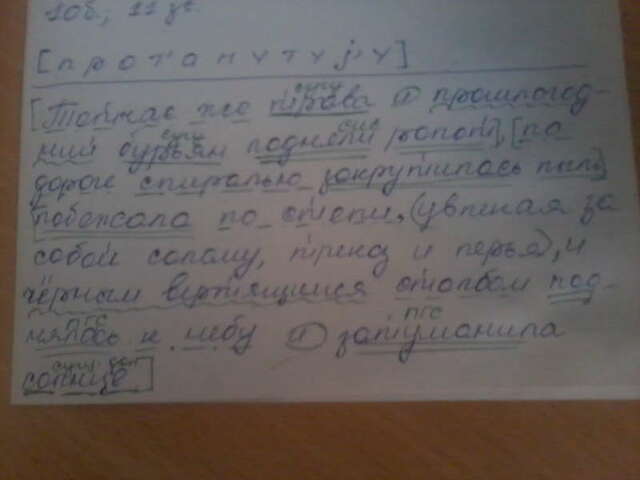 10б, 11 зв
[ п р о т а п ч у т у j' у ]
[Тотчас же трава и прошлогод-
сущ
ний бурьян подняли ропот], [по
сущ
дороге спиралью закрутилась пыль]
[побежала по степи, (увлекая за
собой солому, стрекоз и перья), и
чёрным вертящимся столбом под-
нялась к небу и затуманила
гл
сущ доп
солнце]